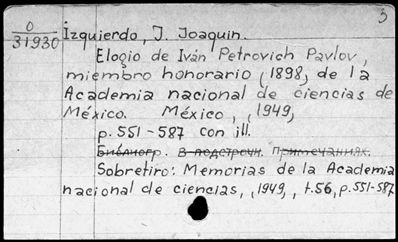 3
0
31930
Izquierdo, J. Joaquin.
Elogio de Iván Petrovich Pavlov,
miembro honorario (1898) de la
Academia nacional de ciencias de
México. México, , 1949,
p. 551-587 con ill.
Библиогр. в подстрочн. примечаниях.
Sobretiro: Memorias de la Academia
nacional de ciencias, , 1949, , t.56, p.551-587